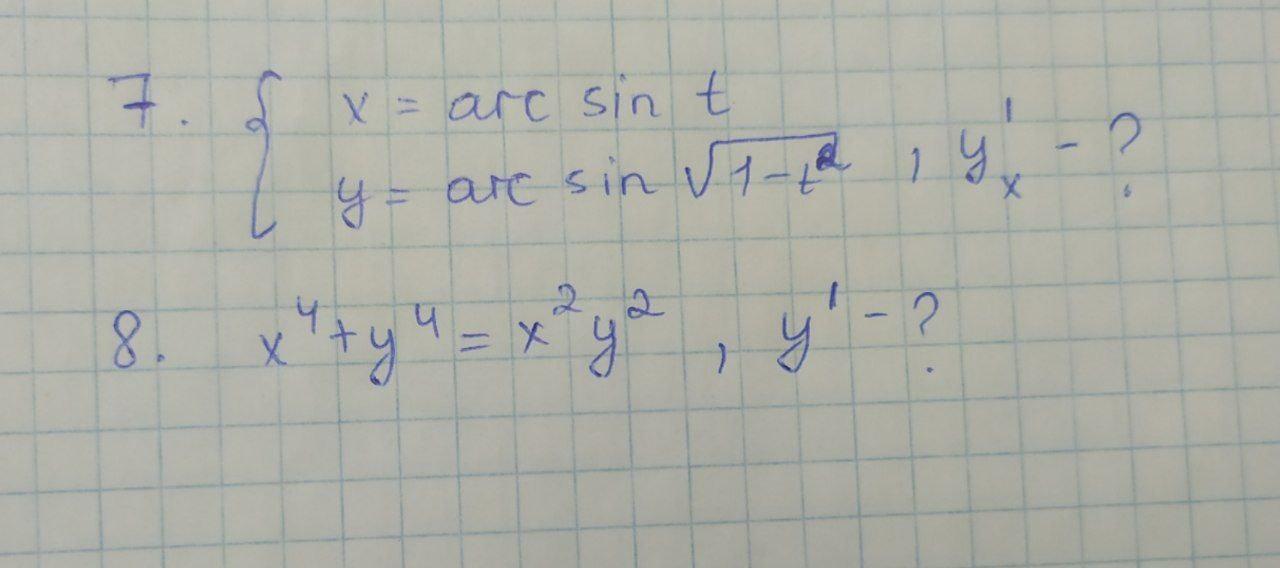 7. { x = arc sin t
y = arc sin √(1-t²) , y'ₓ - ?
8. x⁴+y⁴ = x²y² , y' - ?